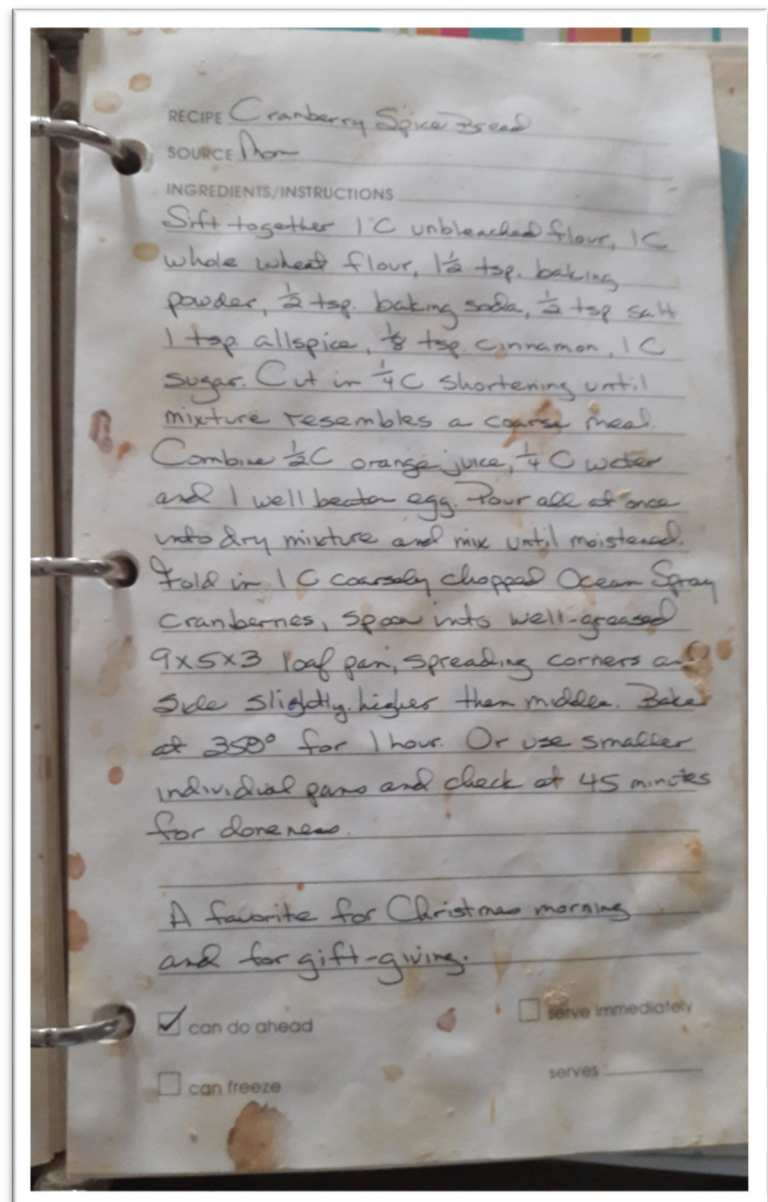 RECIPE Cranberry Spice Bread
SOURCE Mom
INGREDIENTS/INSTRUCTIONS
Sift together 1 C unbleached flour, 1C
whole wheat flour, 1½ tsp. baking
powder, ½ tsp. baking soda, ½ tsp salt
1 tsp allspice, ⅛ tsp. cinnamon, 1 C
sugar. Cut in ¼ C shortening until
mixture resembles a coarse meal.
Combine ½C orange juice, ¼ C water
and 1 well beaten egg. Pour all at once
into dry mixture and mix until moistened.
Fold in 1 C coarsely chopped Ocean Spray
cranberries, spoon into well-greased
9x5x3 loaf pan, spreading corners and
side slightly higher then middle. Bake
at 350° for 1 hour. Or use smaller
individual pans and check at 45 minutes
for doneness.
A favorite for Christmas morning
and for gift-giving.
✓ can do ahead
serve immediately
can freeze
serves